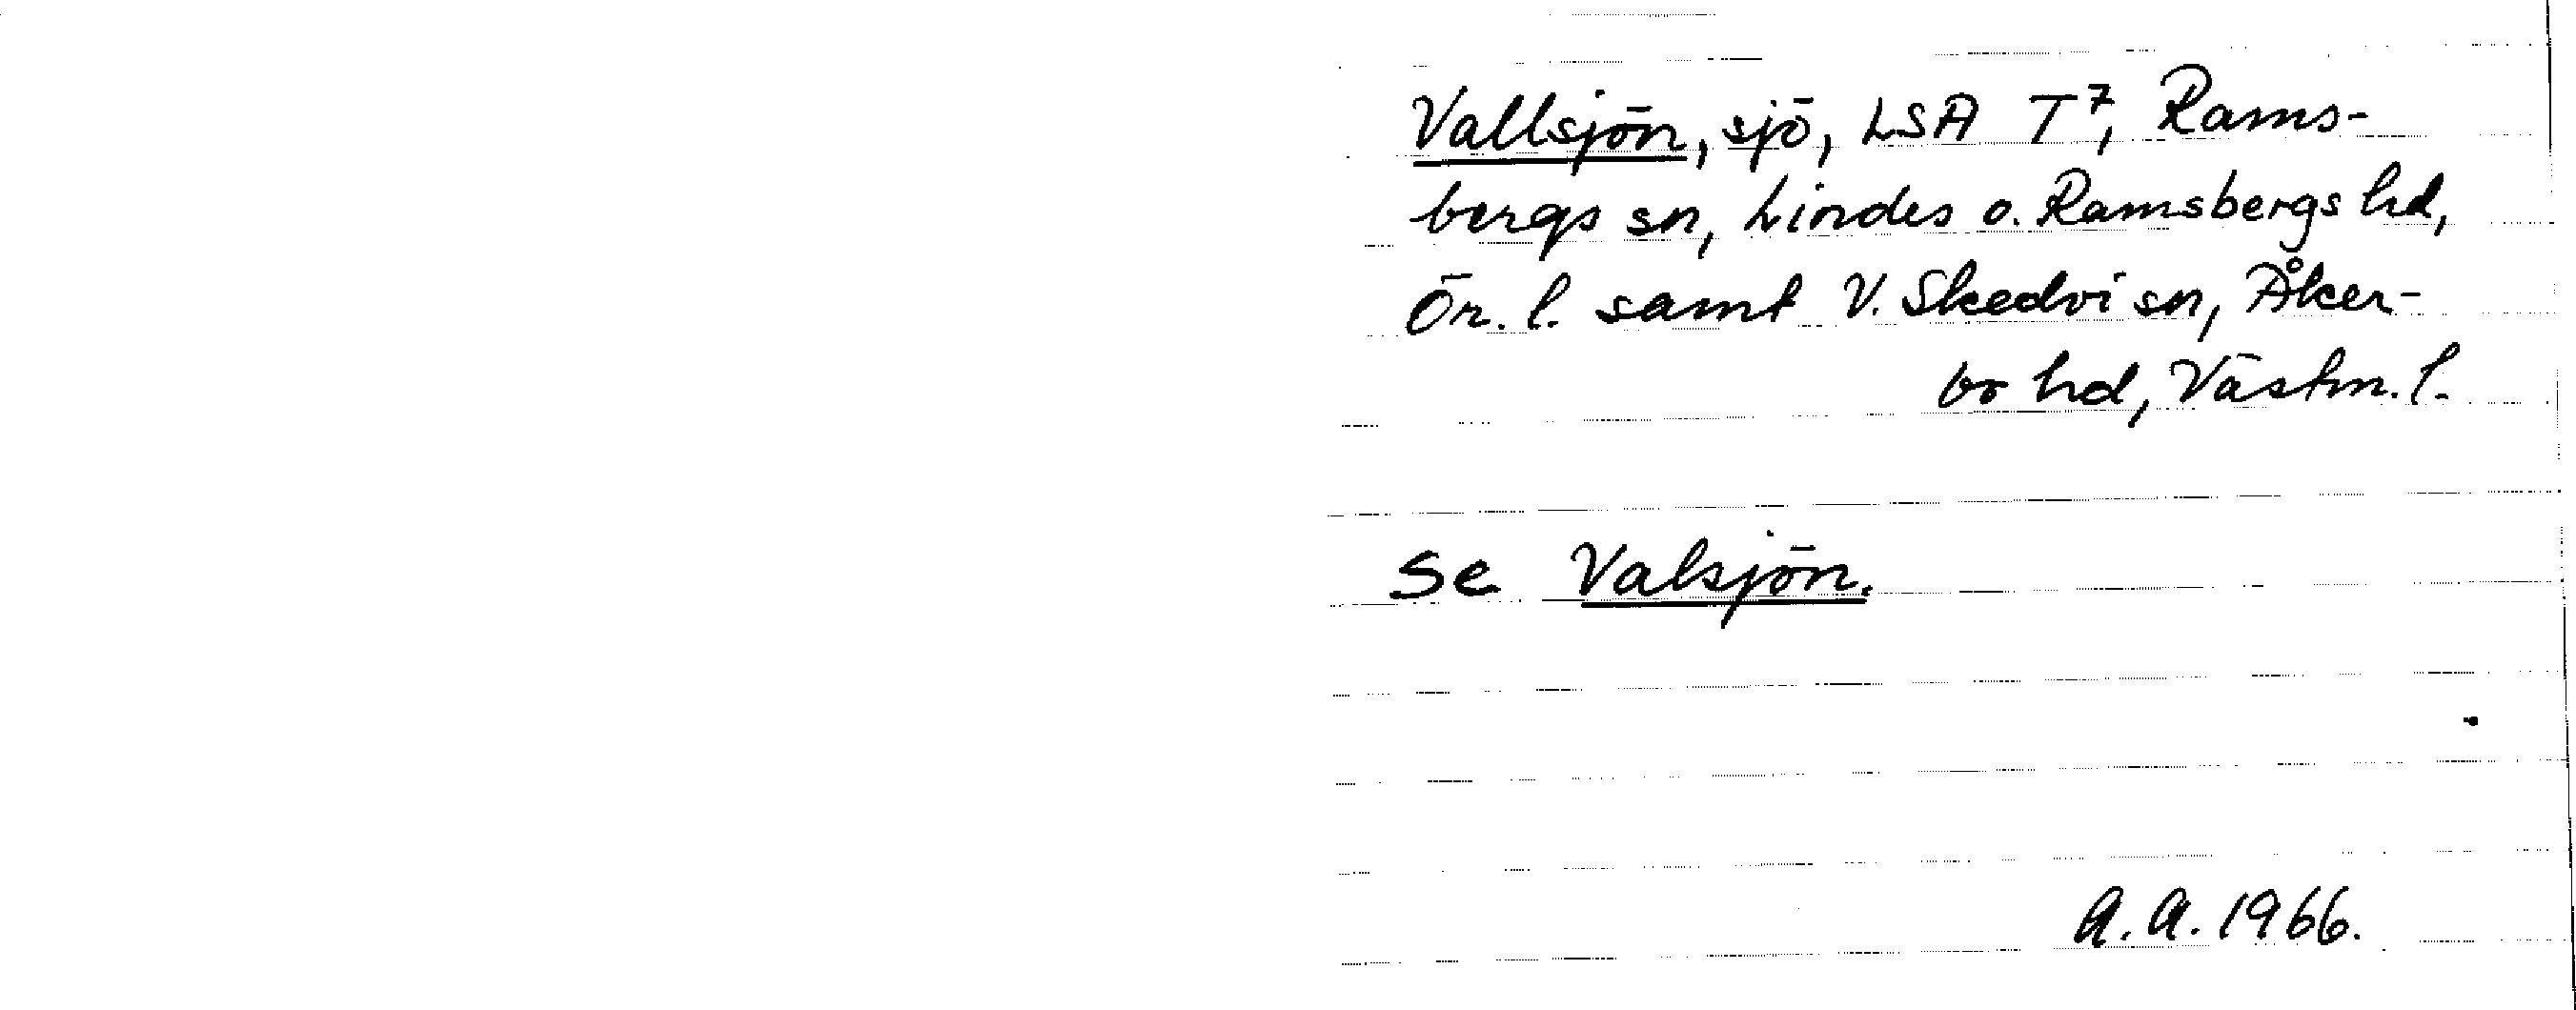 Vallsjön, sjö, LSA T⁷, Rams-
bergs sn, Lindes o. Ramsbergs hd,
Ör. l. samt V. Skedvi sn, Åker-
bo hd, Västm. l.
Se Valsjön.
A.A. 1966.